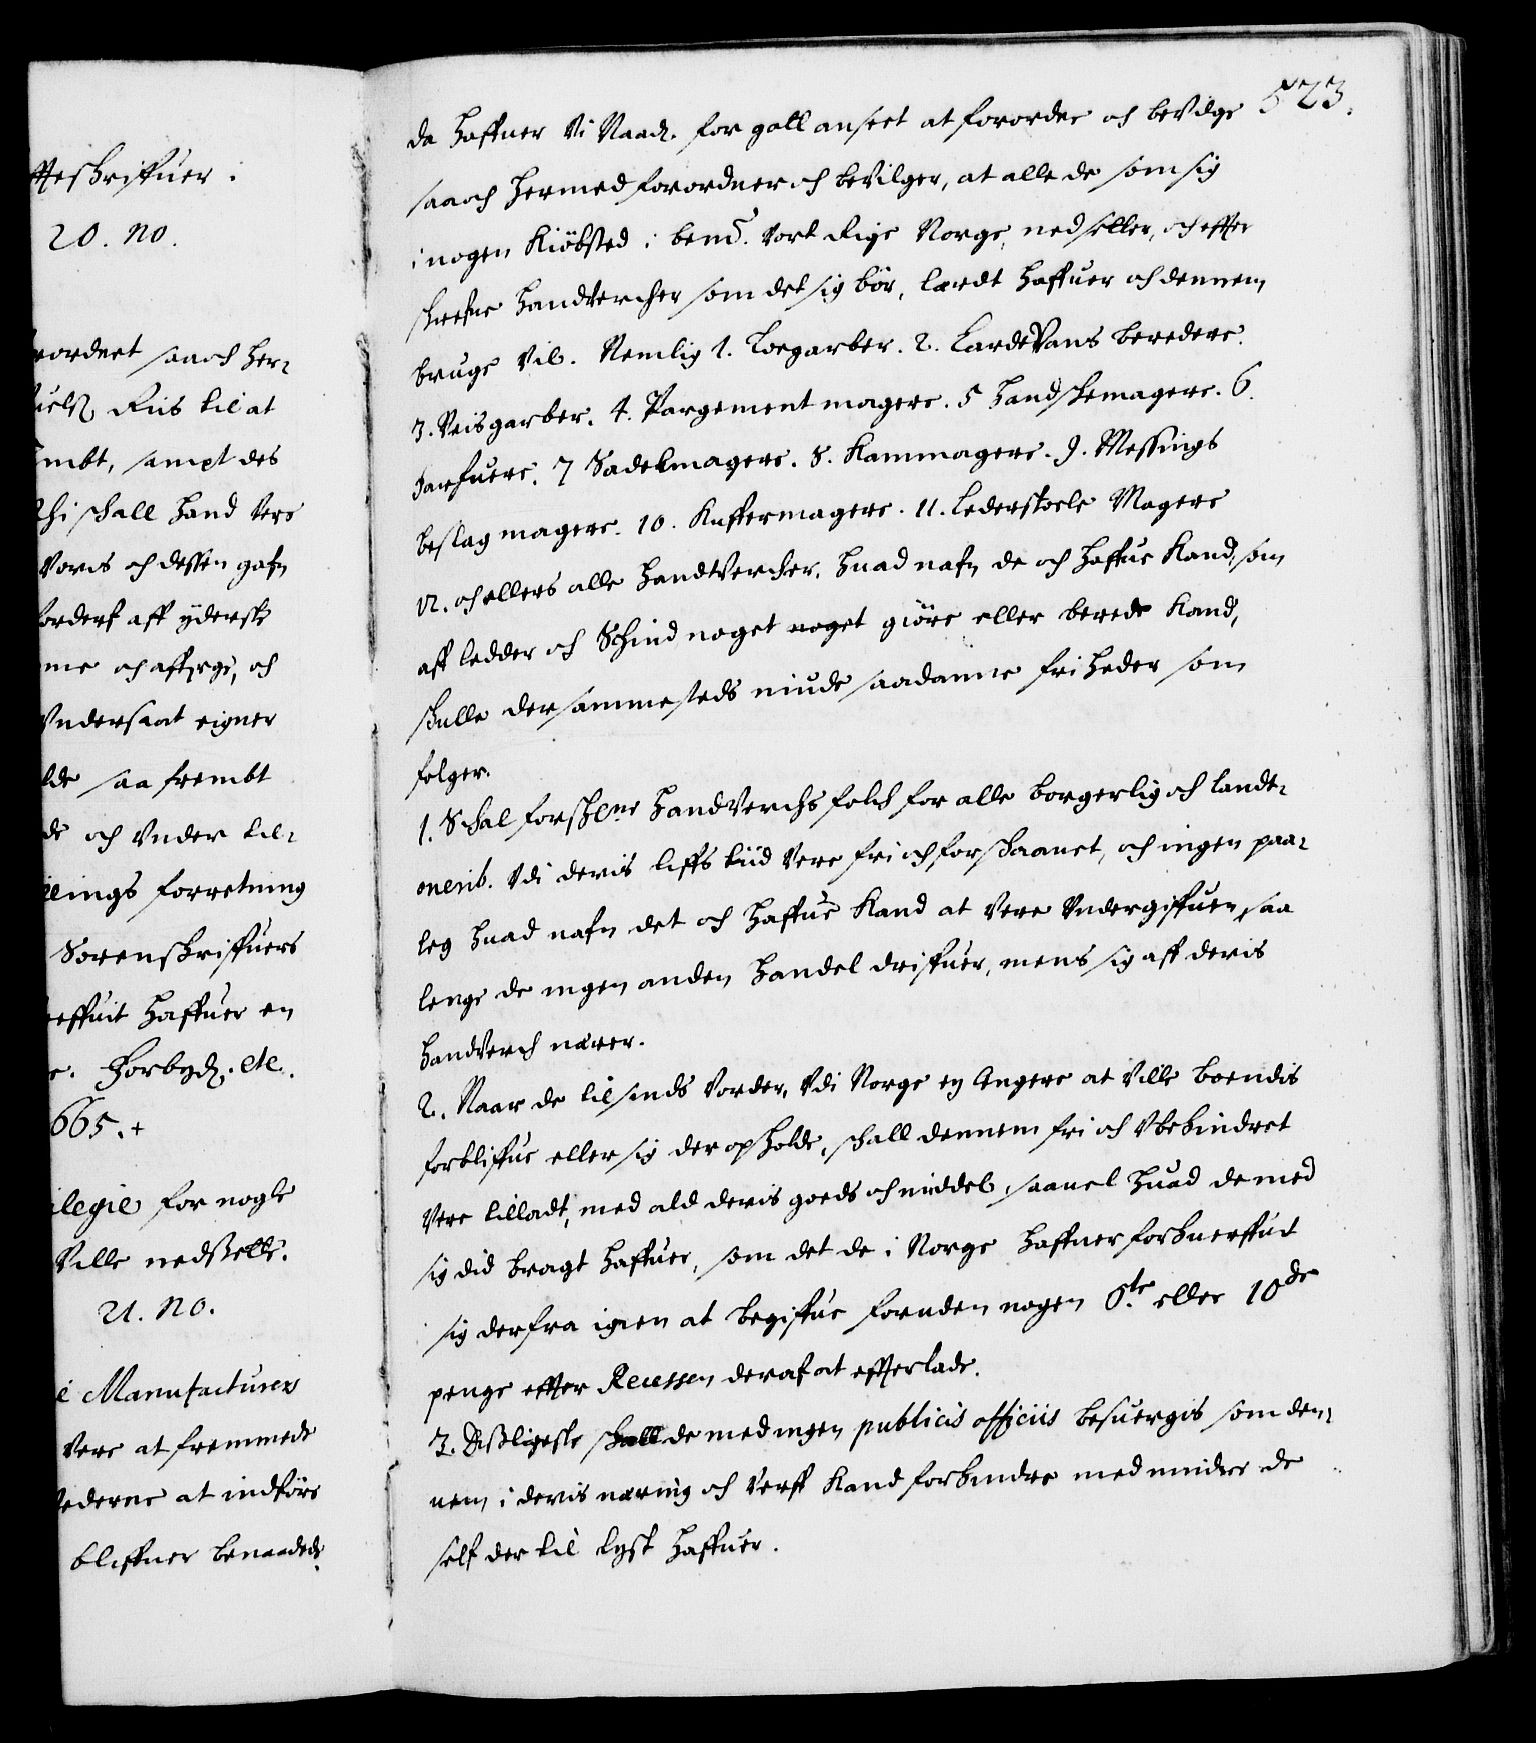 ffteskriffuer.
20. No.
rordnet saaoch her¬
uelß Riis til at
mbt, sampt des
schall hand Vere
Voris och dessen gafn
forderf aff yderste
me och affverge, och
Vndersaat eigner
lde saa frembt
de och Vnder til¬
llings forretning
Sorenskriffuers
effuit haffuer en
e. Forbydz. etc.
665. +
ilegie for nogle
Ville nedsette.
21. No.
e Manufacturer
Vere at fremmede
ederne at indföre
bliffuer benaadede.
523.
da haffuer Vi Naadz. for gatt anseet at forordne och beVilge
saaoch hermed forordner och beVilger, at alle de som sig
i nogen Kiöbsted i bemt. Vort Rige Norge, nedsetter, och effter
skrefne handVercher som det sig bör, lærdt haffuer och dennem
bruge Vil. Nemlig 1. Loegarber. 2. CardeVans beredere.
3. Veisgarber. 4. Pargementmagere. 5 Handskemagere. 6.
Farfuere. 7 Sadelmagere. 8. Kammagere. 9. Messings
beslag magere. 10. Kuffermagere. 11. Lederstoele Magere
12. och ellers alle handVercher, huad nafn de och haffue Kand, som
aff ledder och Schind noget noget giöre eller berede Kand,
skulle dersammesteds niude saadanne friheder som
følger.
1. Schal forskne handVerchs folch for alle borgerlig och lande¬
onerib. Vdi deris liffs tiid Vere fri och forskaanet, och ingen paa¬
leg huad nafn det och haffue Kand at Vere Vndergiffuen, saa
lenge de ingen anden handel driffuer, mens sig aff deris
handVerch nærer.
2. Naar de til sinds Vorder, Vdi Norge ey lengere at Ville boendis
forbliffue eller sig der opholde, schall dennem fri och Vbehindret
Vere tilladt, med ald deris goeds och middel, saauel huad de med
sig did bragt haffuer, som det de i Norge haffuer forhuerffuit
sig derfra igien at begiffue foruden nogen 6.te eller 10de
penge effter Recessen deraf at effterlade.
3. Disligeste schall de med ingen publicis officiis besuergis som den¬
nem i deris næring och Verff Kand forhindre med mindre de
self der til lyst haffuer.